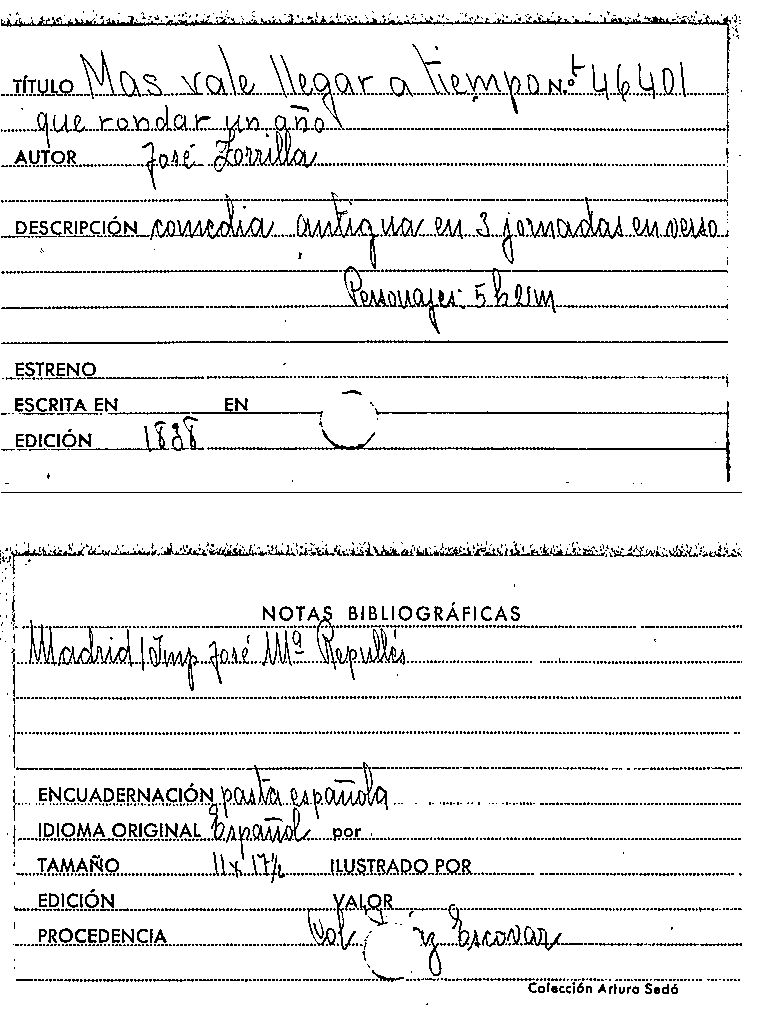 TÍTULO Mas vale llegar a tiempo N.º t 46401
que rondar un año
AUTOR José Zorrilla
DESCRIPCIÓN comedia antigua en 3 jornadas en verso
Personajes: 5h 2m
ESTRENO
ESCRITA EN EN
EDICIÓN 1838
NOTAS BIBLIOGRÁFICAS
Madrid/Imp José Mª Repullés
ENCUADERNACIÓN pasta española
IDIOMA ORIGINAL Español por
TAMAÑO 11x17½ ILUSTRADO POR
EDICIÓN VALOR
PROCEDENCIA Escovar
Colección Arturo Sedó